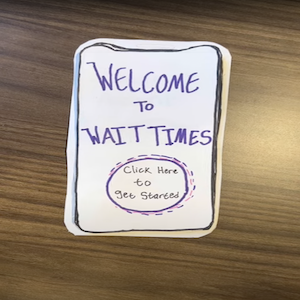 WELCOME
TO
WAIT TIMES
Click Here
to
get Started